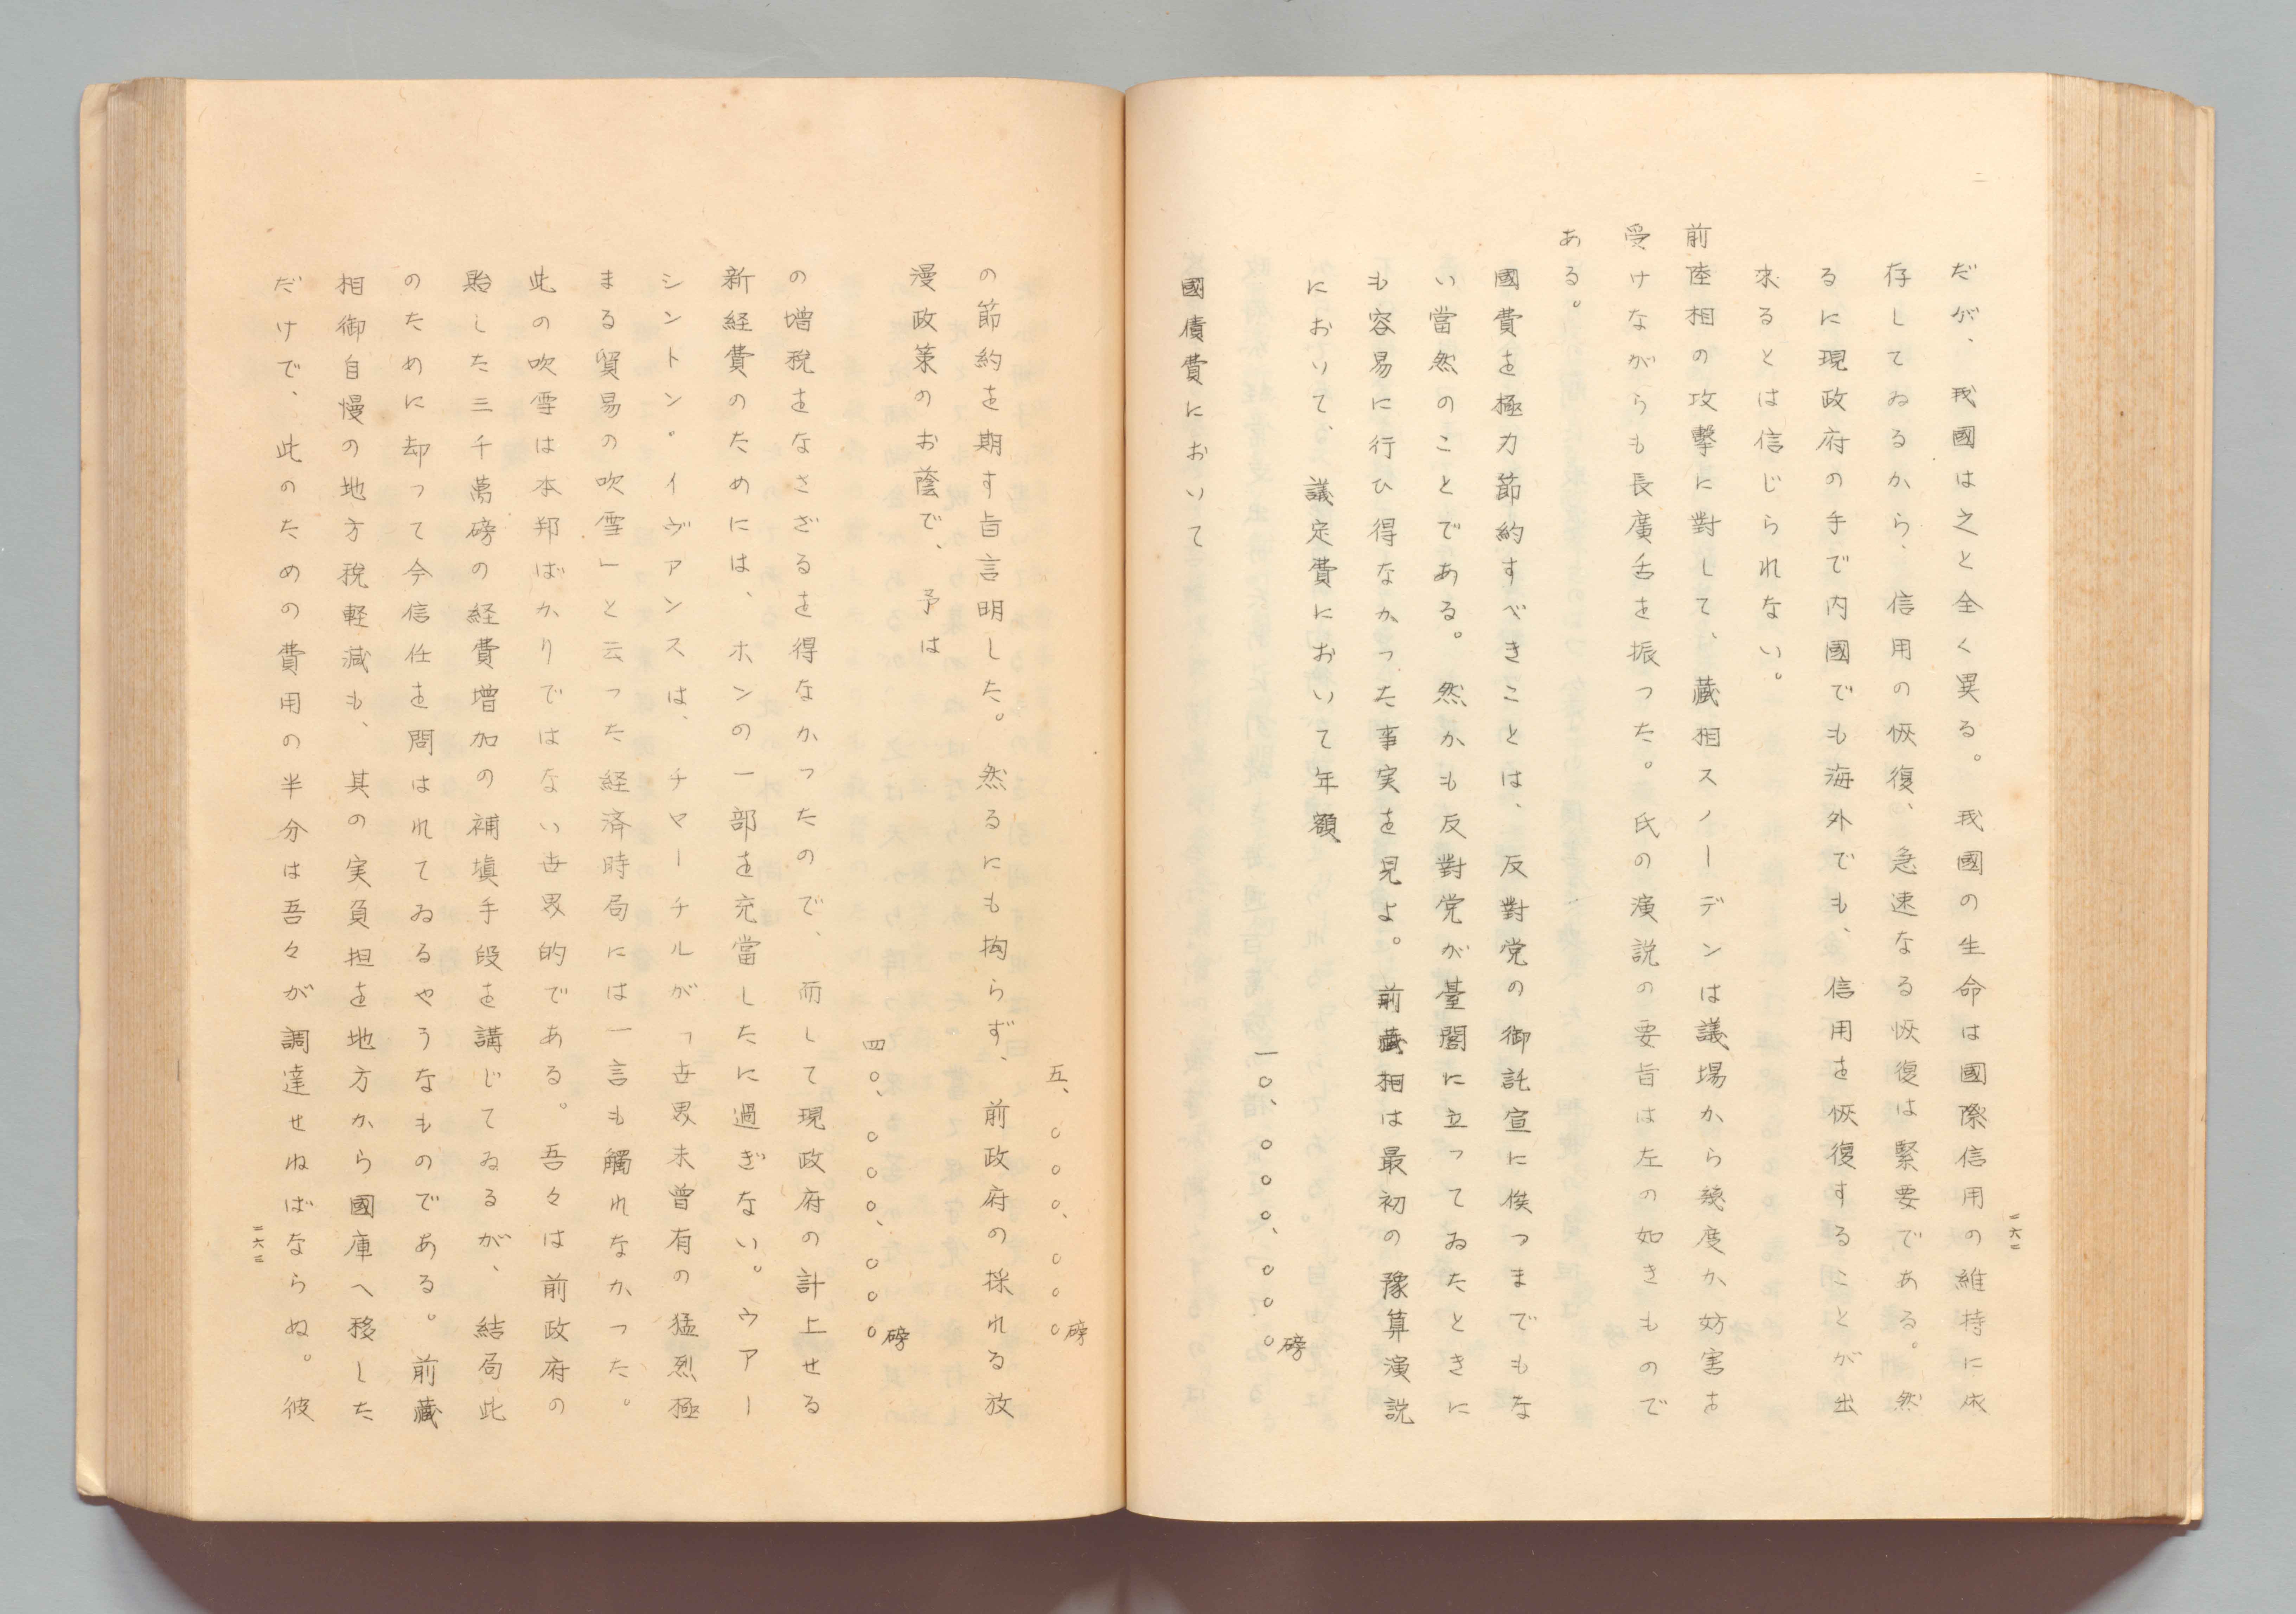 だが、我國は之と全く異る。我國の生命は國際信用の維持に依
存してゐるから、信用の恢復、急速なる恢復は緊要である。然
るに現政府の手で内國でも海外でも、信用を恢復することが出
來るとは信じられない。
前陸相の攻擊に對して、蔵相スノーデンは議場から幾度か妨害を
受けながらも長廣舌を振った。氏の演説の要旨は左の如きもので
ある。
國費を極力節約すべきことは、反對党の御託宣に俟つまでもな
い當然のことである。然かも反對党が臺閣に立ってゐたときに
も容易に行ひ得なかった事実を見よ。前蔵相は最初の豫算演説
において、議定費において年額
一〇、〇〇〇、〇〇〇磅
國債費において
五、〇〇〇、〇〇〇磅
の節約を期す旨言明した。然るにも拘らず、前政府の採れる放
漫政策のお蔭で、予は
四〇、〇〇〇、〇〇〇磅
の増税をなさざるを得なかったので、而して現政府の計上せる
新経費のためには、ホンの一部を充當したに過ぎない。ウアー
シントン・イヴアンスは、チヤーチルが「世界未曾有の猛烈極
まる貿易の吹雪」と云った経済時局には一言も觸れなかった。
此の吹雪は本邦ばかりではない世界的である。吾々は前政府の
貽した三千萬磅の経費増加の補塡手段を講じてゐるが、結局此
のために却って今信任を問はれてゐるやうなものである。前蔵
相御自慢の地方税軽減も、其の実負担を地方から國庫へ移した
だけで、此のための費用の半分は吾々が調達せねばならぬ。彼